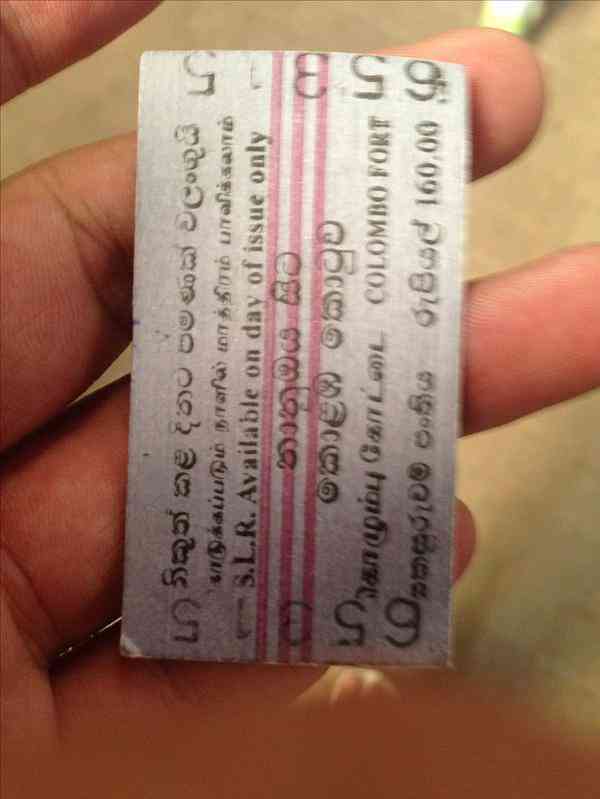 නිකුත් කළ දිනට පමණක් වලංගුයි
காடுக்கப்படும் நாளில் மாத்திரம் பாவிக்கலாம்
S.L.R. Available on day of issue only
නානුඔය සිට
කොළඹ කොටුව
கொழும்பு கோட்டை COLOMBO FORT
පංතිය රුපියල් 160.00